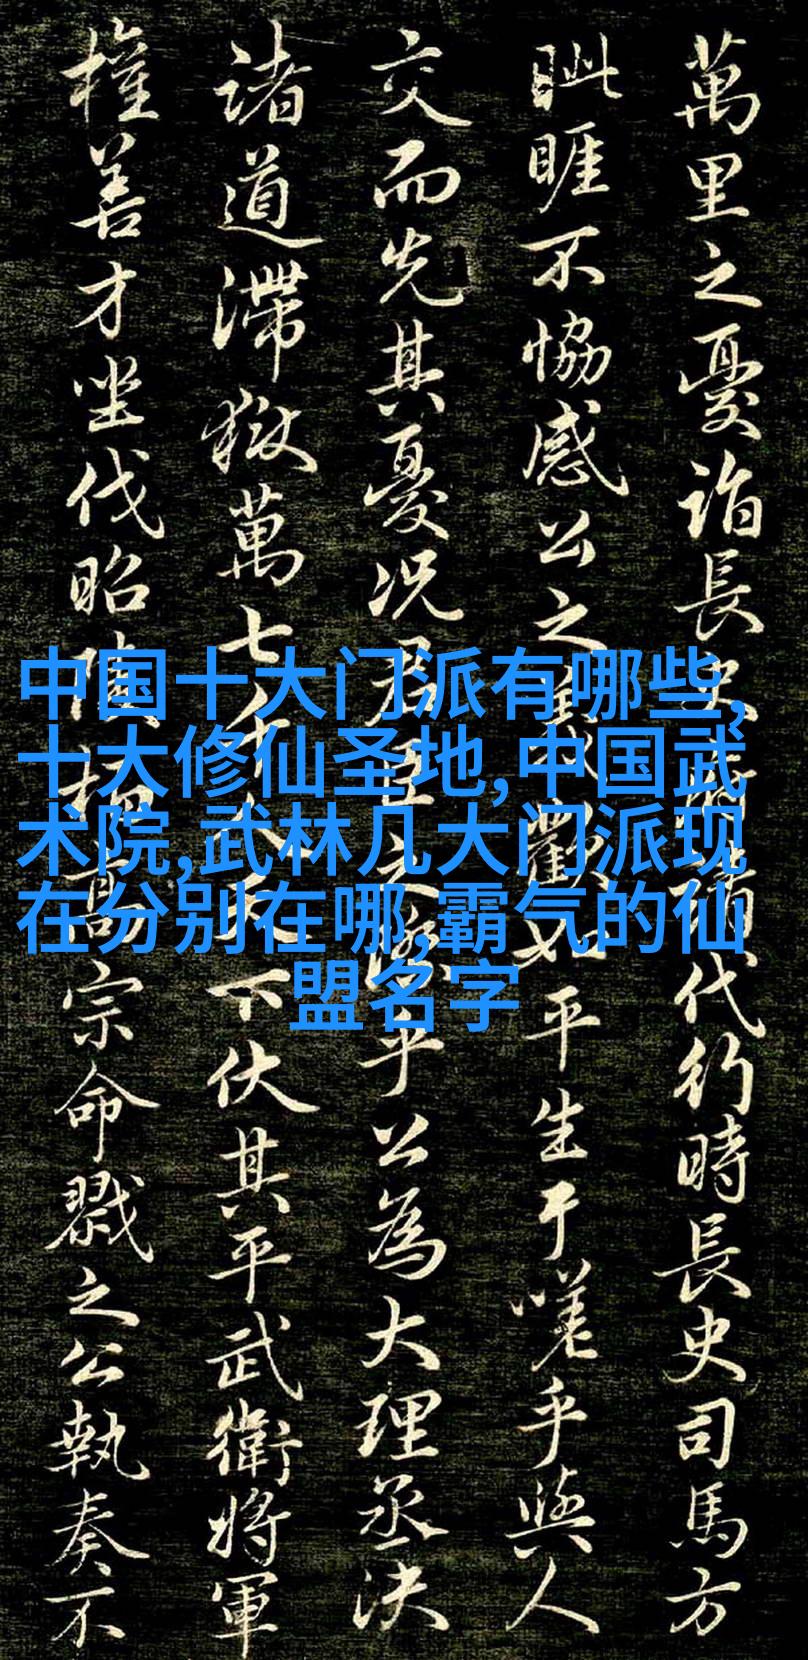 萬里之憂詣長史請代行時長史司馬方
眦睢不恊感公之義歡如平生于嗟乎與人
交而先其憂況君臣之際乎公為大理丞決
諸道滯獄萬七千人天下伏其平武衛將軍
權善才坐伐昭陵栢高宗命戮之公執奏不
中国十大门派有哪些,
十大修仙圣地,中国武
术院,武林几大门派现
在分别在哪,霸气的仙
盟名字